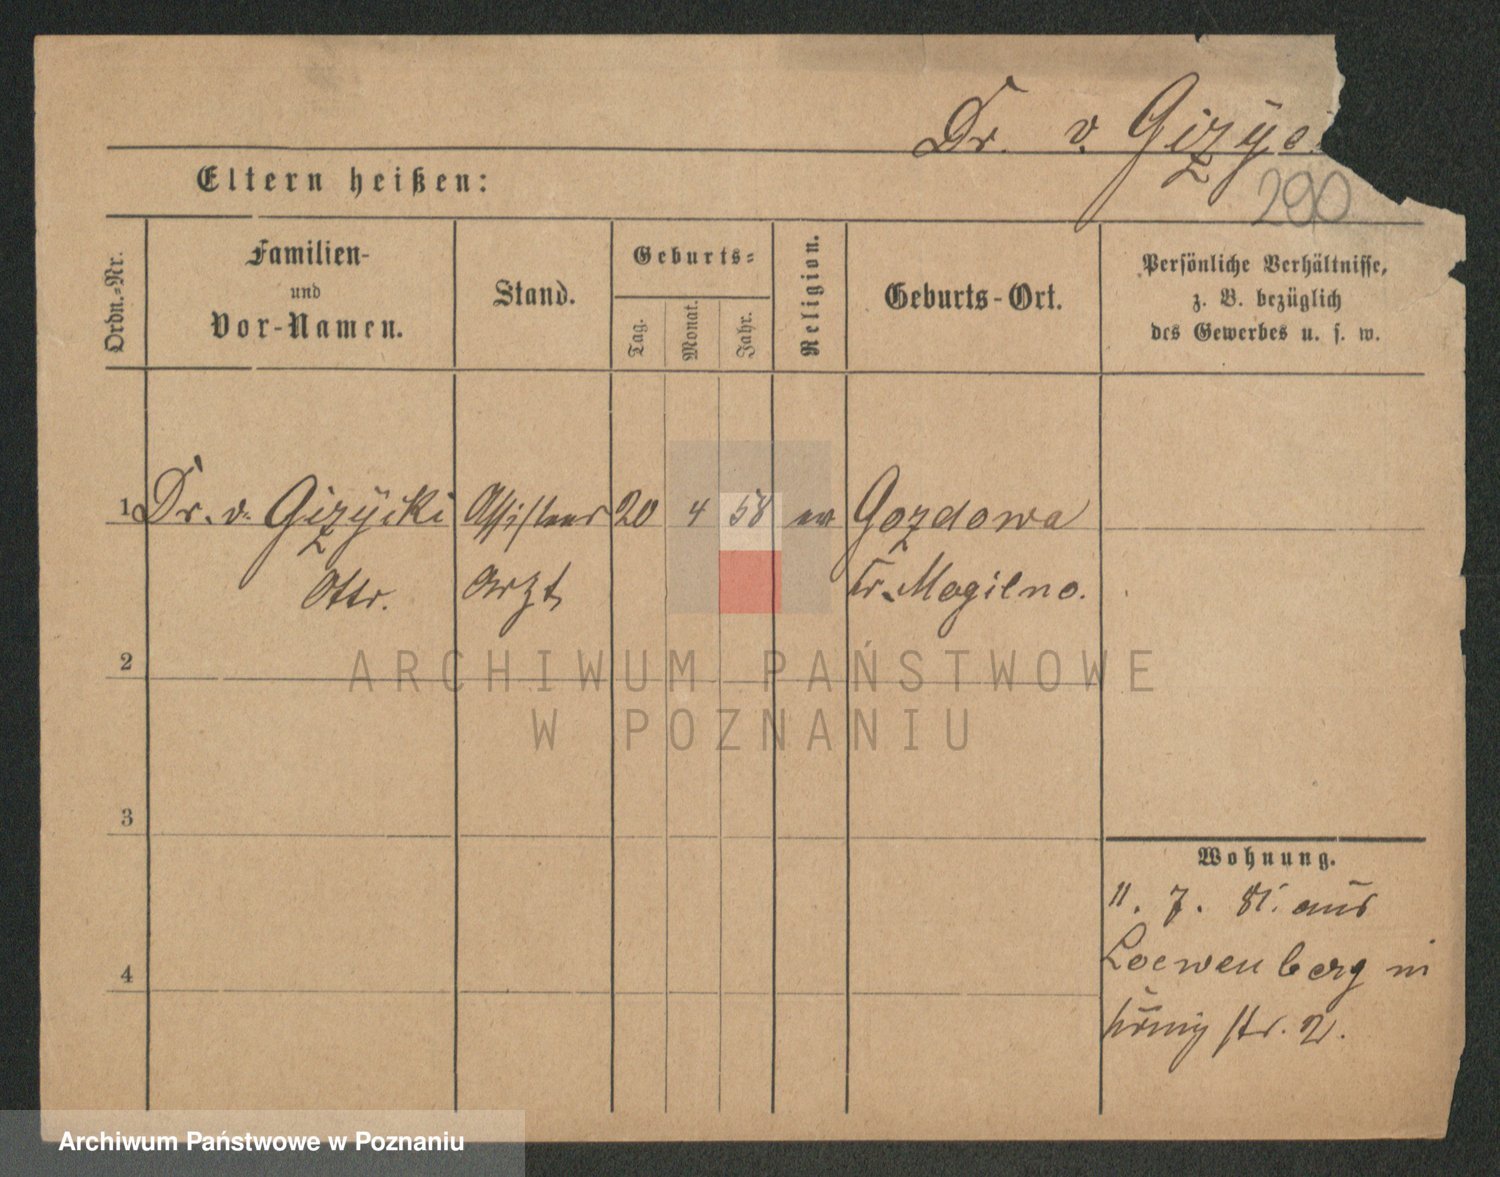 Dr. v. Gizÿc
290
Eltern heißen:
Ordn.-Nr.
Familien-
und
Vor-Namen.
Stand.
Geburts-
Tag.
Monat.
Jahr.
Religion.
Geburts-Ort.
Persönliche Verhältnisse,
z. B. bezüglich
des Gewerbes u. s. w.
1 Dr. v. Gizÿcki Assistenz 20 4 58 ev Gozdowa
Arzt Kr. Mogilno.
2
3
4
Wohnung.
11. 7. 81. aus
Loewenberg in
König str. 2.
ARCHIWUM PAŃSTWOWE
W POZNANIU
Archiwum Państwowe w Poznaniu